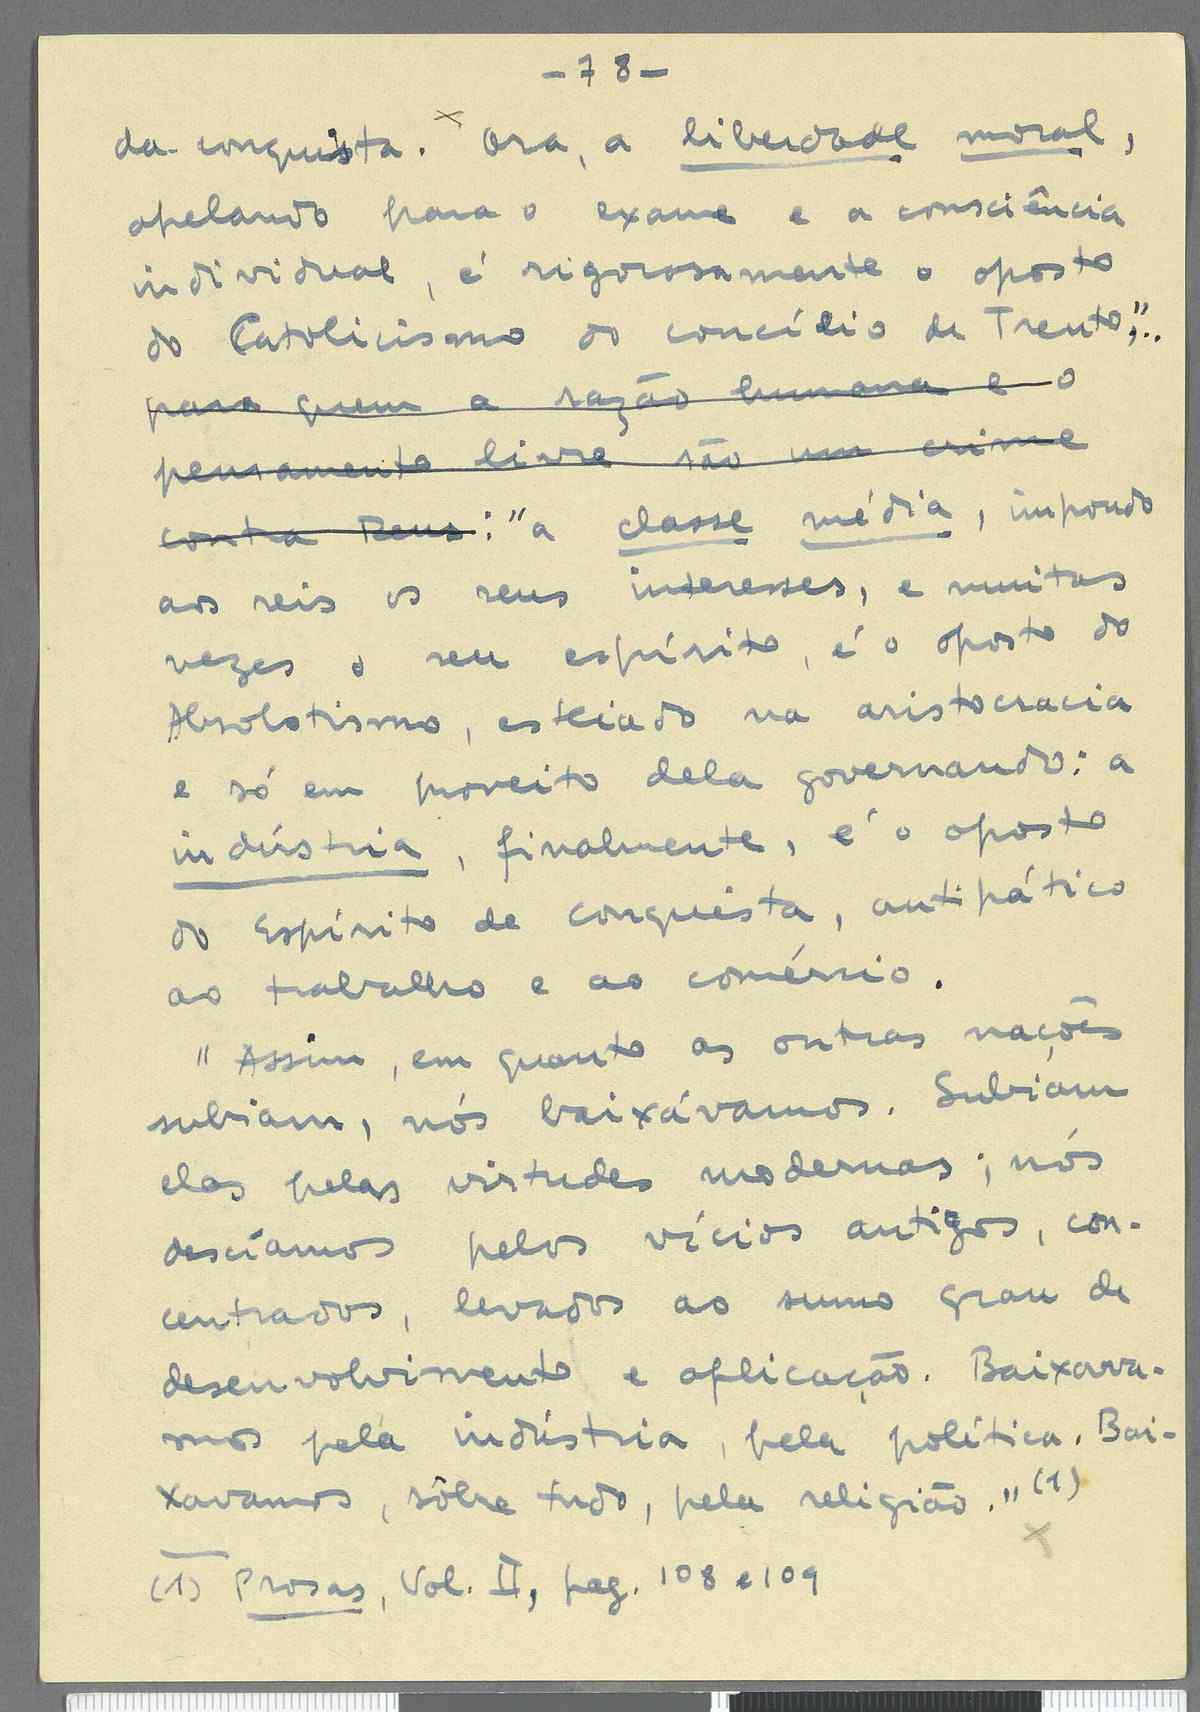 -78-
da conquista. × Ora, a liberdade moral,
apelando para o exame e a consciência
individual, é rigorosamente o oposto
do Catolicismo do concílio de Trento;"..
para quem a razão humana e o
pensamento livre são um crime
contra Deus: "a classe média, impondo
aos reis os seus interesses, e muitas
vezes o seu espírito, é o oposto do
Absolutismo, esteiado na aristocracia
e só em proveito dela governando: a
indústria, finalmente, é o oposto
do Espírito de conquista, antipático
ao trabalho e ao comércio.
"Assim, em quanto as outras nações
subiam, nós baixávamos. Subiam
elas pelas virtudes modernas; nós
desciamos pelos vícios antigos, con-
centrados, levados ao sumo grau de
desenvolvimento e aplicação. Baixava-
mos pela indústria, pela política. Bai-
xavamos, sôbre tudo, pela religião." (1)
×
(1) Prosas, Vol. II, pag. 108 e 109